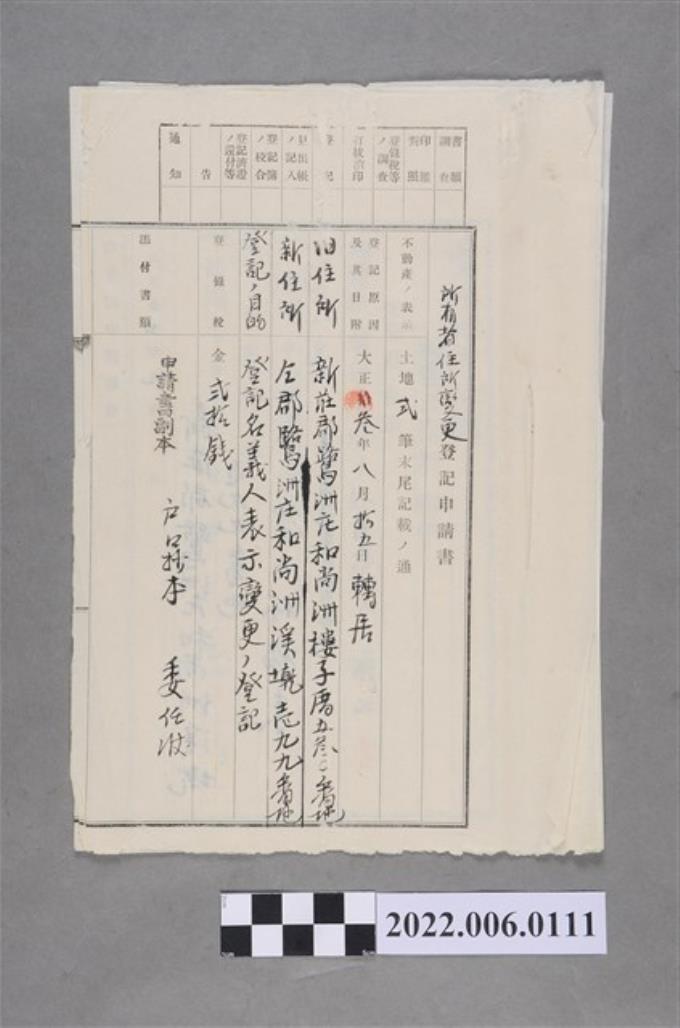 書類調査
印鑑対照
登録税等ノ調査
登記
見出帳ノ記入
登記簿ノ校合
登記済証ノ還付等
告
通知
所有者住所変更登記申請書
不動産ノ表示 土地弐筆末尾記載ノ通
登記原因及其日附 大正 叁年八月拾五日轉居
旧住所 新庄郡鷺洲庄和尚洲樓子厝五叁〇番地
新住所 仝郡鷺洲庄和尚洲溪墘壱九九番地
登記ノ目的 登記名義人表示變更ノ登記
登録税 金弐拾銭
添付書類 申請書副本 戸口抄本 委任状
2022.006.0111